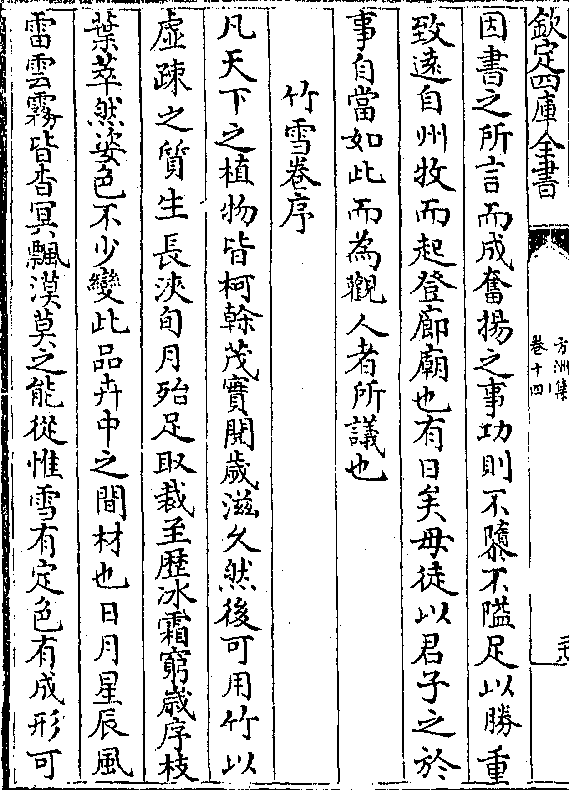 欽定四庫全書
方洲集
卷十四
因書之所言而成奮揚之事功則不隳不隘足以勝重
致遠自州牧而起登廊廟也有日矣毋徒以君子之於
事自當如此而為觀人者所議也
竹雪卷序
凡天下之植物皆柯榦茂實閱歳滋久然後可用竹以
虚疎之質生長浹旬月殆足取裁至歴冰霜窮歳序枝
葉萃然姿色不少變此品卉中之間材也日月星辰風
雷雲霧皆杳冥飄漠莫之能從惟雪有定色有成形可